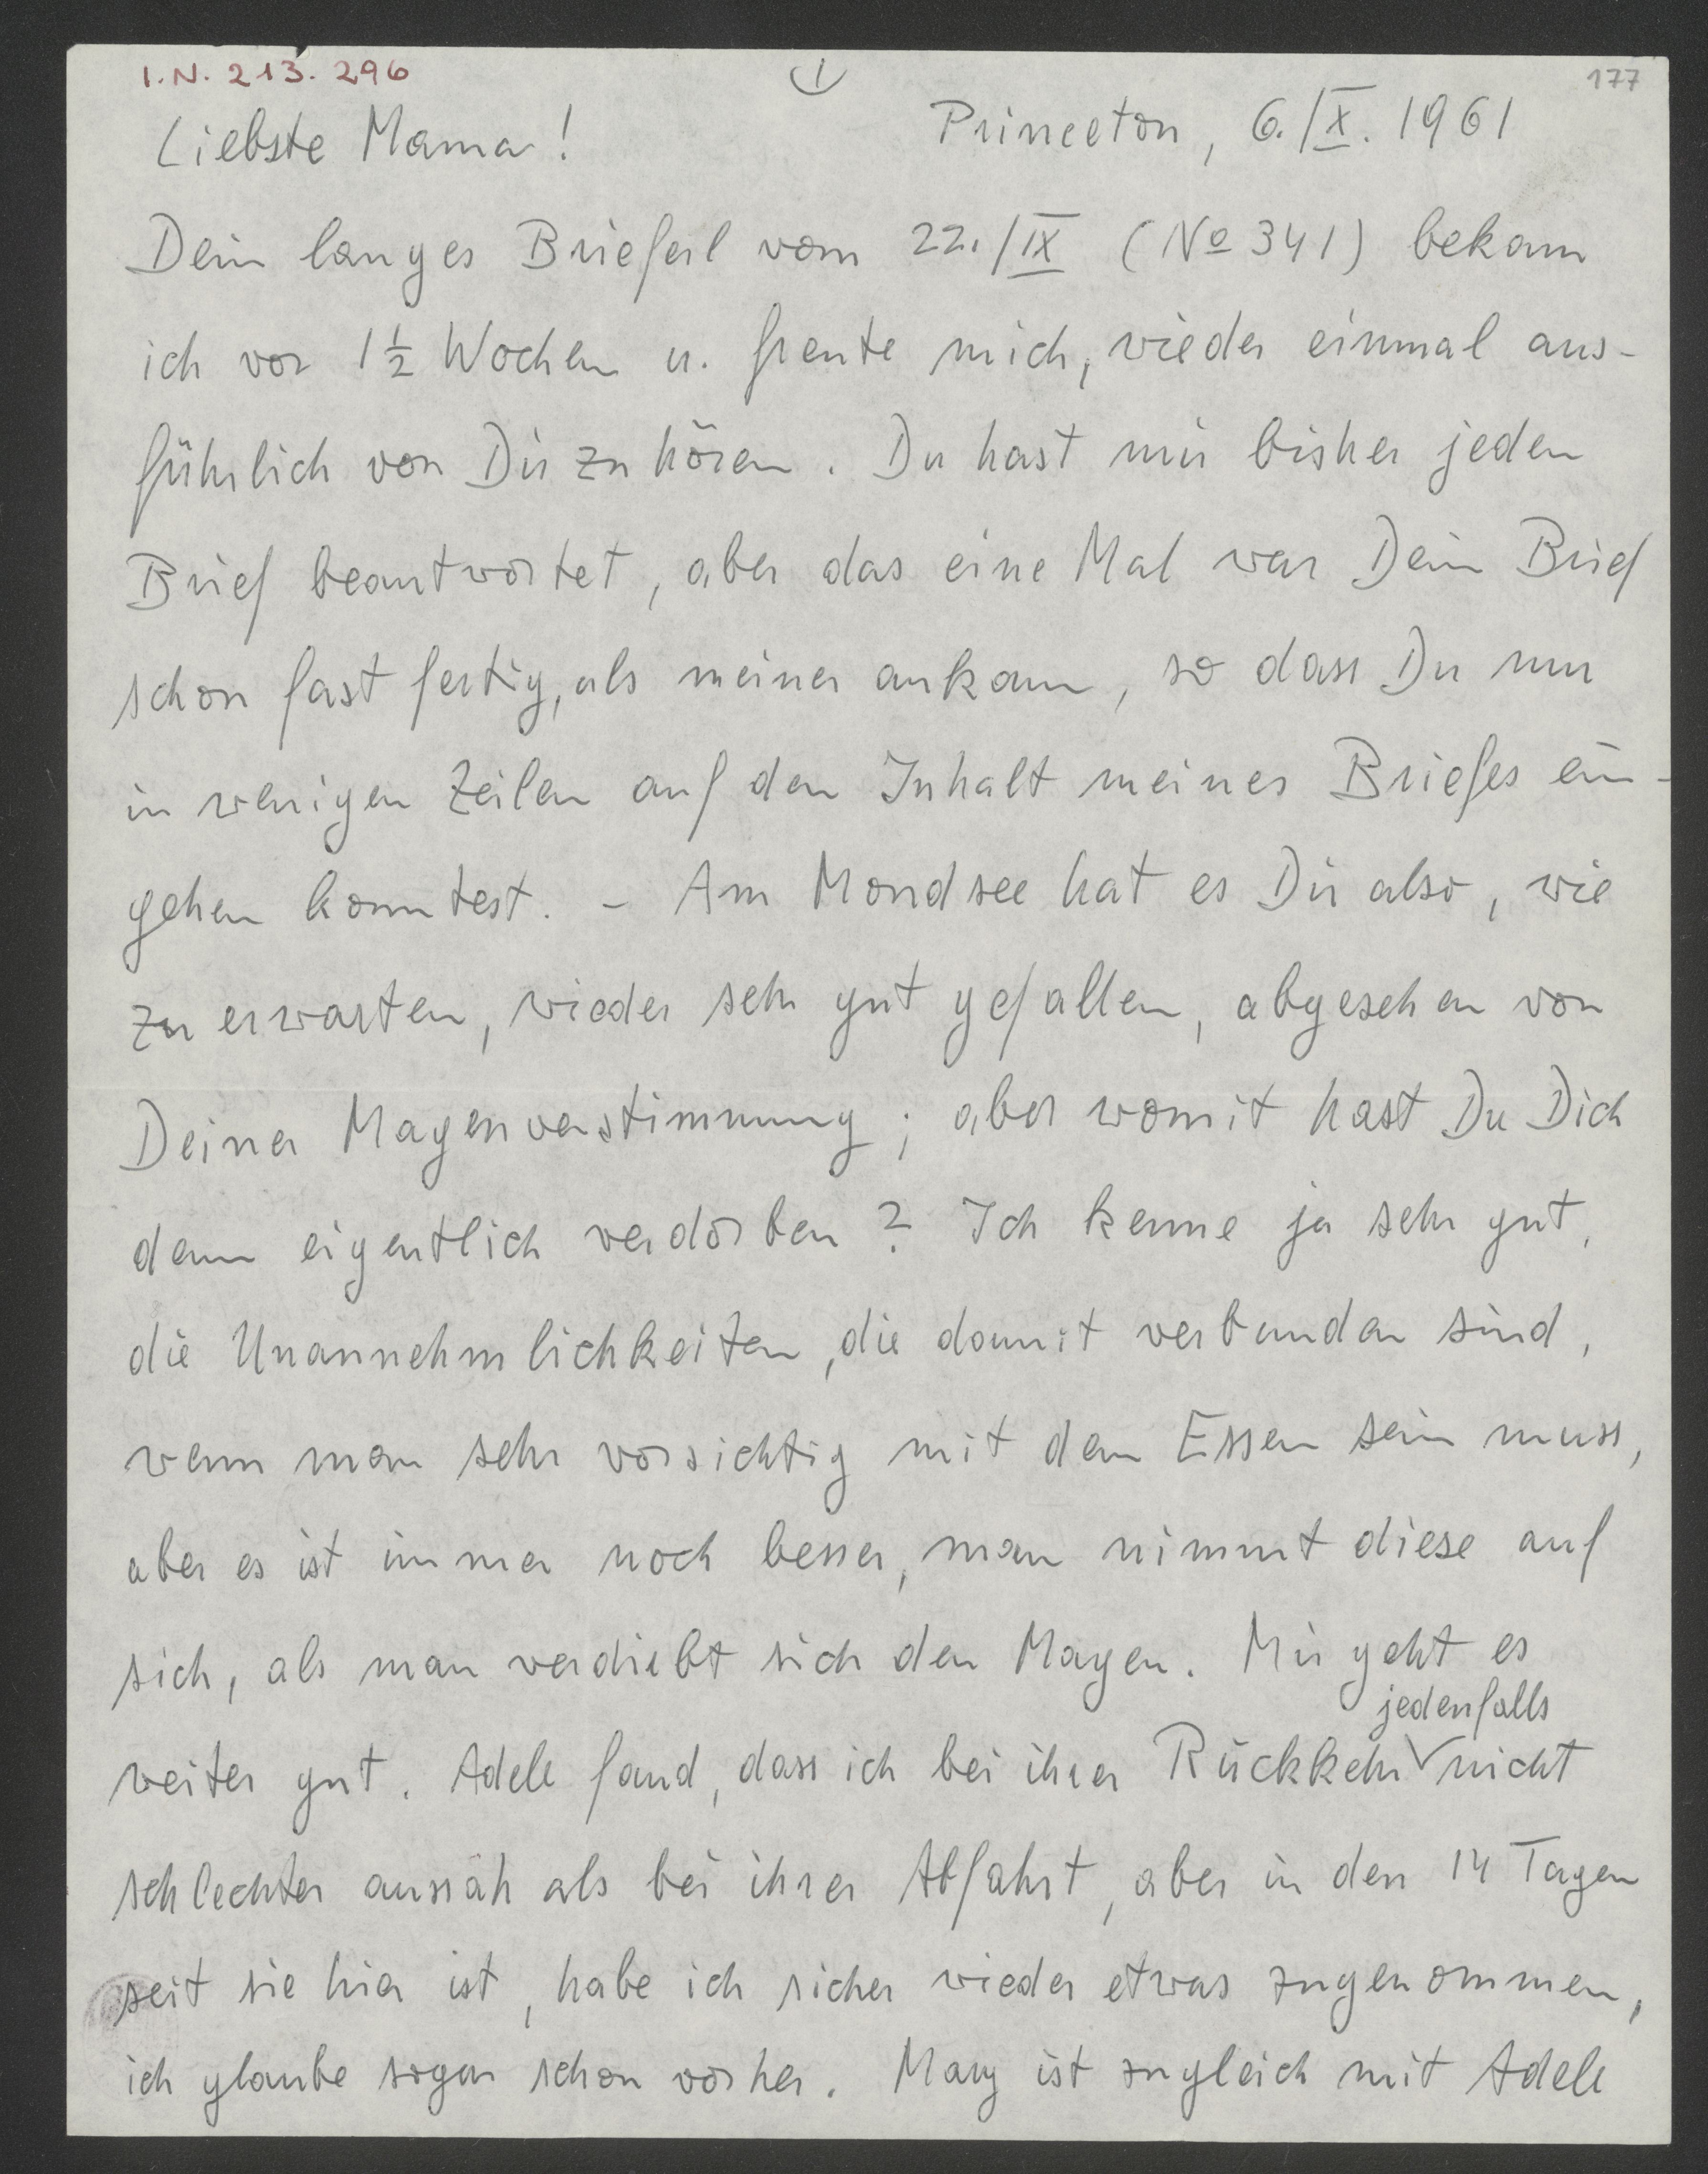 I.N. 213.296
1
177
Liebste Mama! Princeton, 6./X. 1961
Dein langes Brieferl vom 22./IX (No 341) bekam
ich vor 1 1/2 Wochen u. freute mich, wieder einmal aus-
führlich von Dir zu hören. Du hast mir bisher jeden
Brief beantwortet, aber das eine Mal war Dein Brief
schon fast fertig, als meiner ankam, so dass Du nur
in wenigen Zeilen auf den Inhalt meines Briefes ein-
gehen konntest. - Am Mondsee hat es Dir also, wie
zu erwarten, wieder sehr gut gefallen, abgesehen von
Deiner Magenverstimmung; aber womit hast Du Dich
denn eigentlich verdorben? Ich kenne ja sehr gut,
die Unannehmlichkeiten, die damit verbunden sind,
wenn man sehr vorsichtig mit dem Essen sein muss,
aber es ist immer noch besser, man nimmt diese auf
sich, als man verdirbt sich den Magen. Mir geht es
jedenfalls
weiter gut. Adele fand, dass ich bei ihrer Rückkehr nicht
schlechter aussäh als bei ihrer Abfahrt, aber in den 14 Tagen
seit sie hier ist, habe ich sicher wieder etwas zugenommen,
ich glaube sogar schon vorher. Mary ist zugleich mit Adele